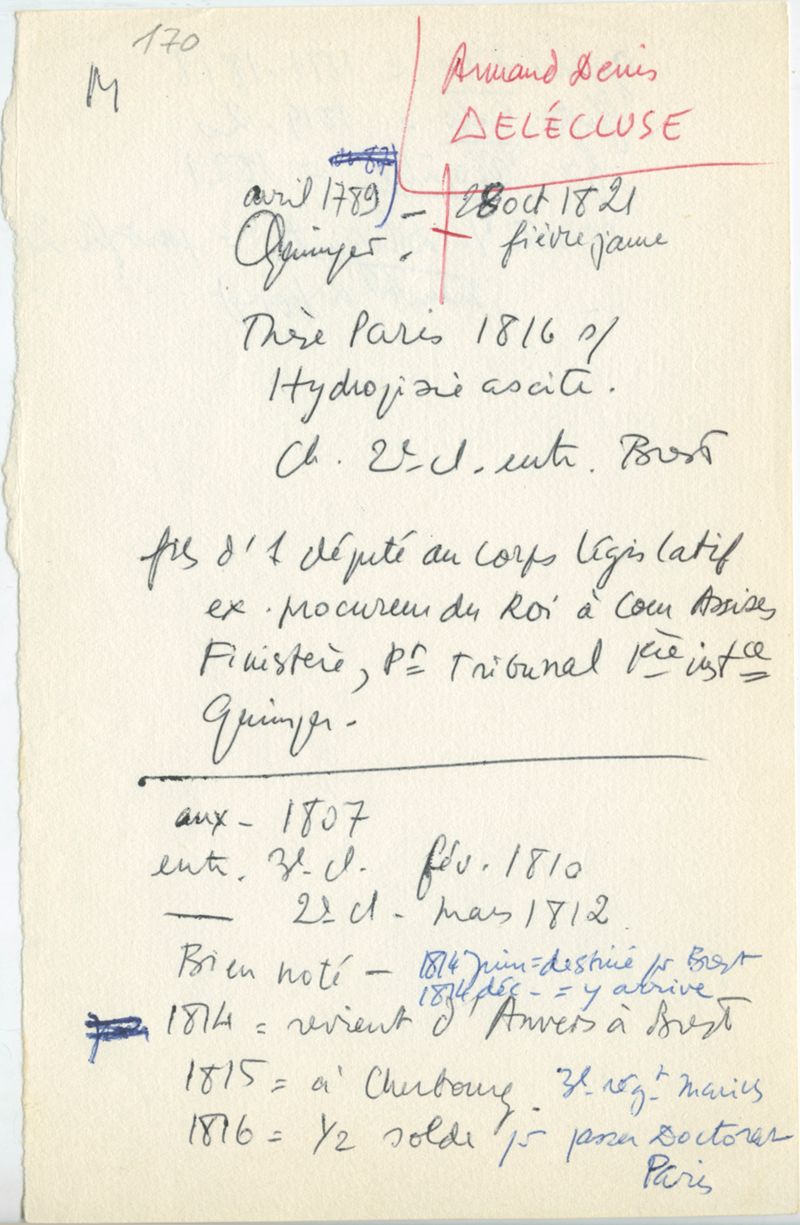 170
M
Armand Denis
DELÉCLUSE
avril 1789 – 28 oct 1821
Quimper. fièvre jaune
Thèse Paris 1816 s/
Hydropisie ascite.
Ch. 2e cl. entr. Brest
fils d'1 député au corps législatif
ex. procureur du Roi à Cour Assises
Finistère, Pt Tribunal 1ère instce
Quimper.
aux – 1807
entr. 3e cl. fév. 1810
— 2e cl – mars 1812
Bien noté – 1814 juin = destiné pr Brest
1814 déc – = y arrive
1814 = revient d'Anvers à Brest
1815 = à Cherbourg. 3e régt marins
1816 = 1/2 solde pr passer Doctorat
Paris